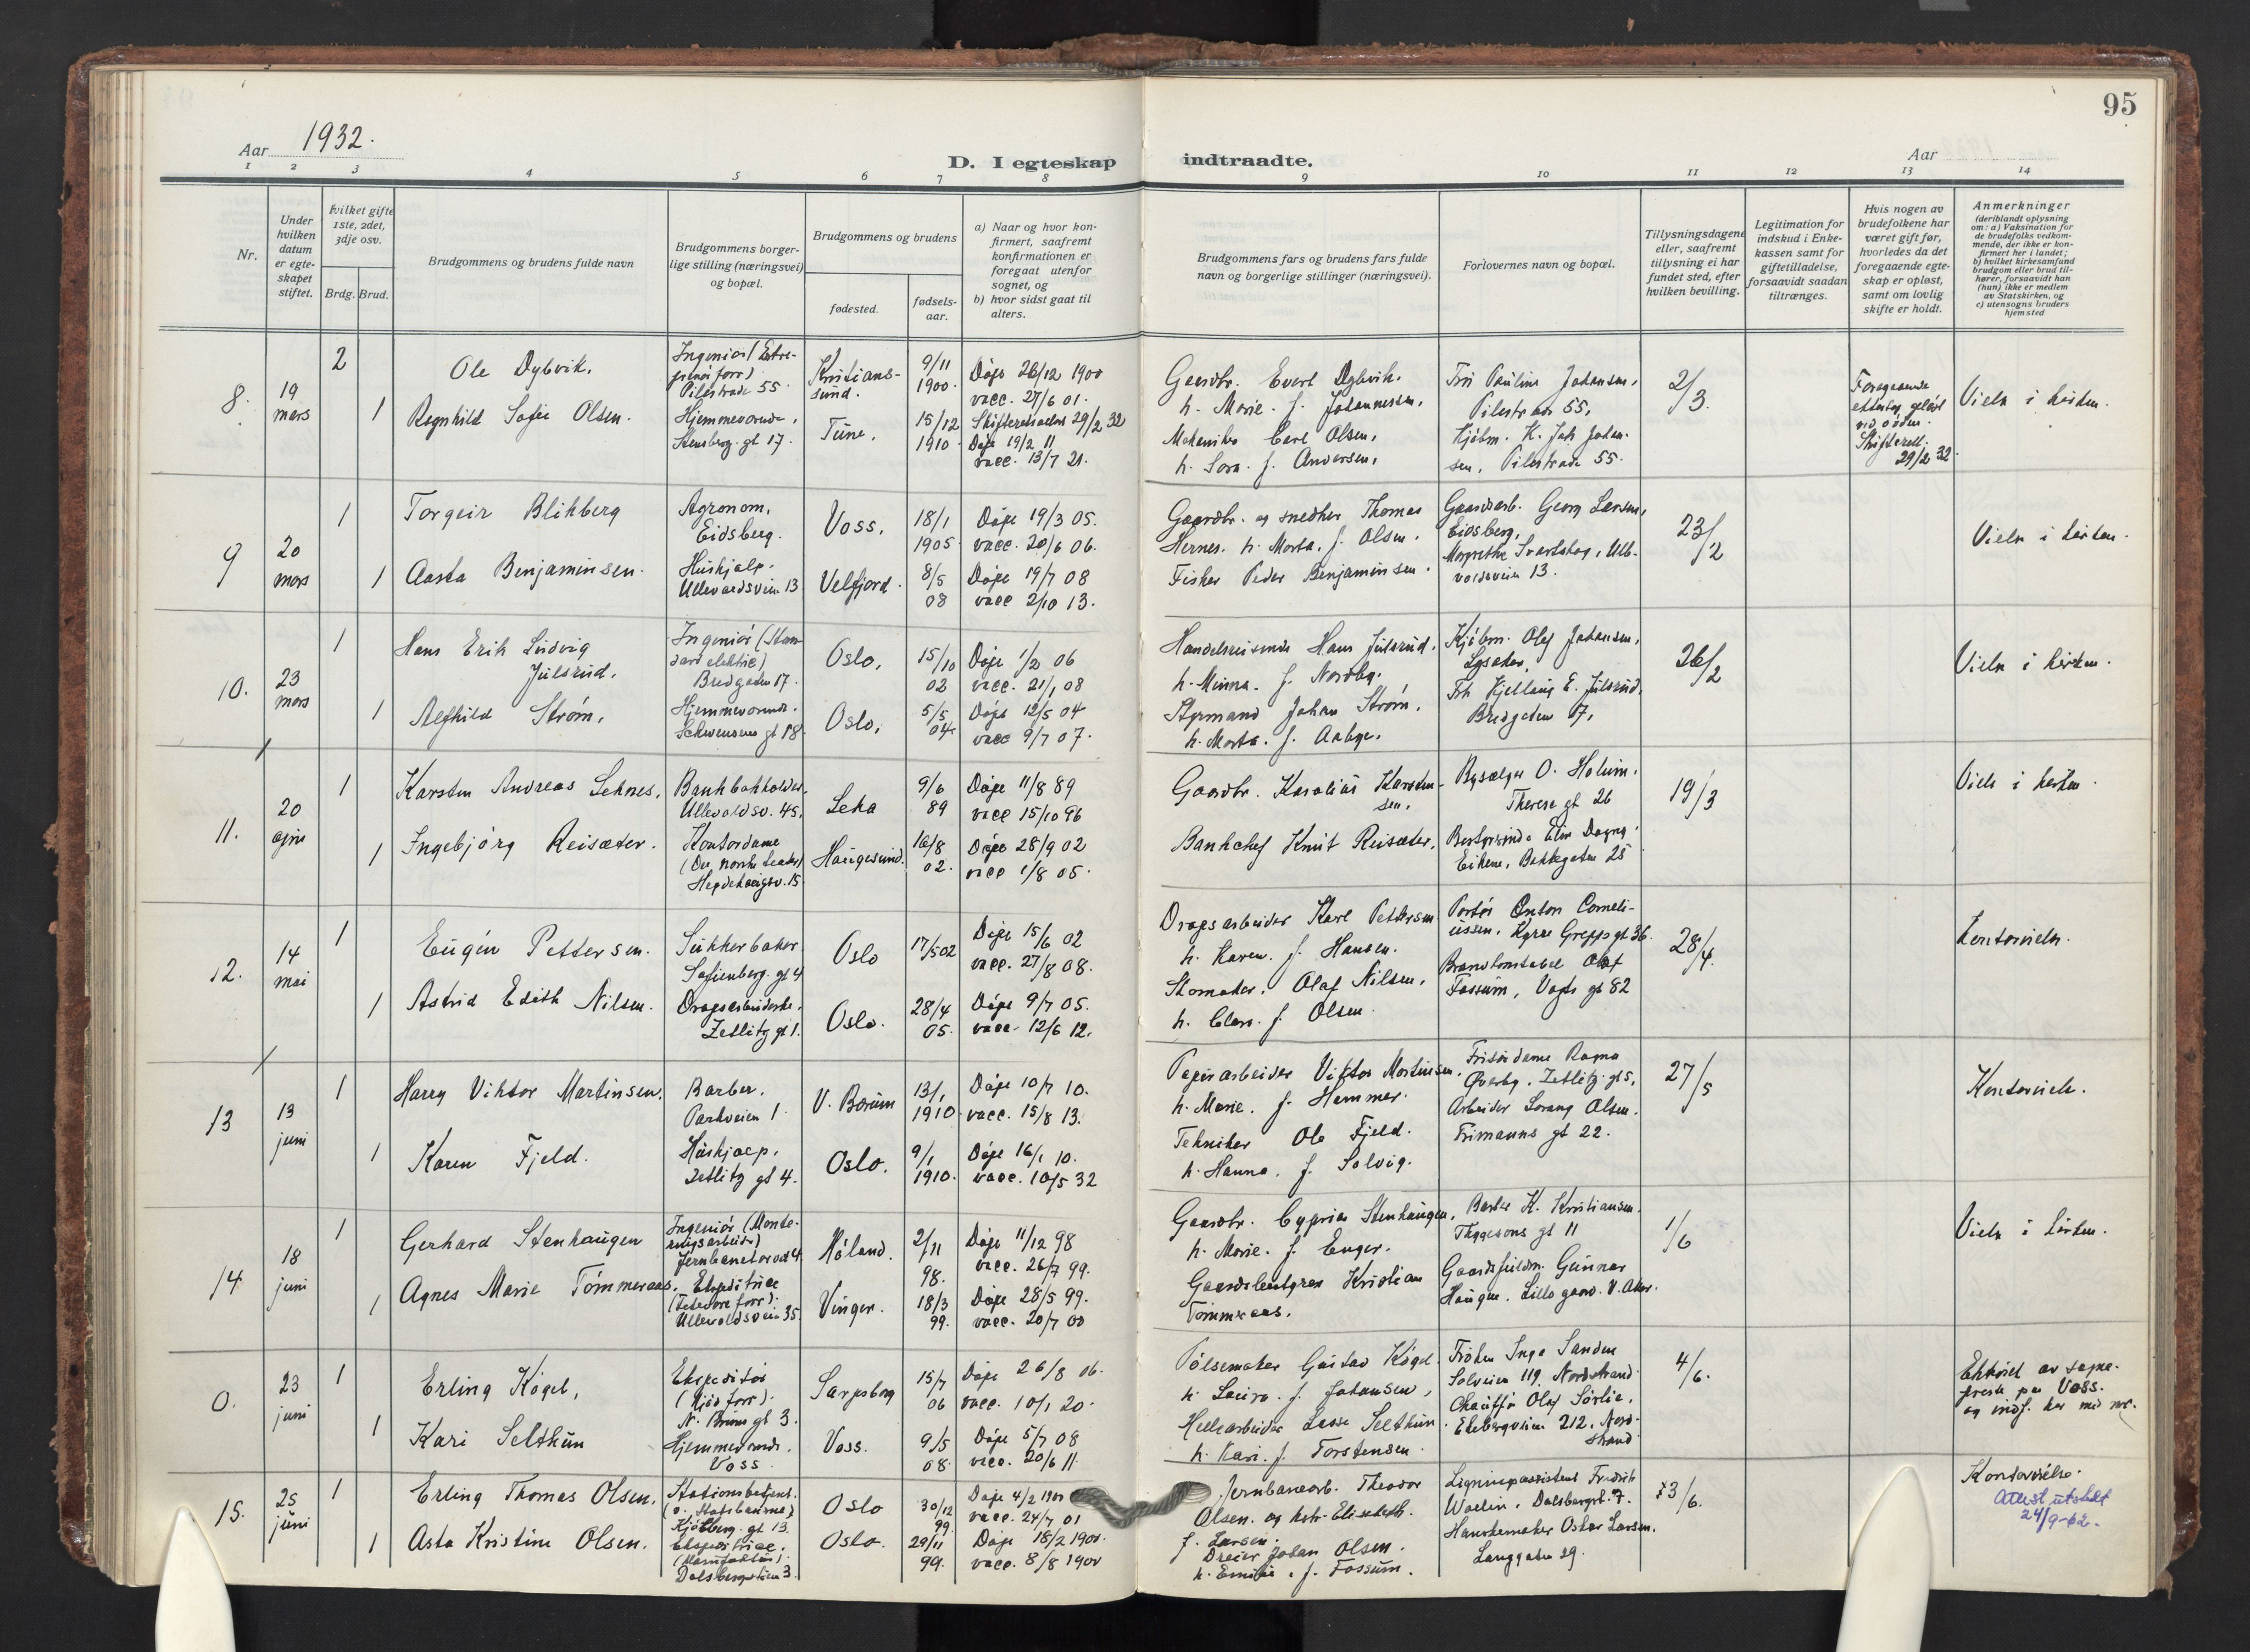 95
Aar 1932.
D. I egteskap indtraadte.
Aar
1 2 3 4 5 6 7 8 9 10 11 12 13 14
Nr.
Under hvilken datum er egteskapet stiftet.
Hvilket gifte 1ste, 2det, 3dje osv.
Brdg. Brud.
Brudgommens og brudens fulde navn
Brudgommens borgerlige stilling (næringsvei) og bopæl.
Brudgommens og brudens
fødested.
fødselsaar.
a) Naar og hvor konfirmert, saafremt konfirmationen er foregaat utenfor sognet, og
b) hvor sidst gaat til alters.
Brudgommens fars og brudens fars fulde navn og borgerlige stillinger (næringsvei).
Forlovernes navn og bopæl.
Tillysningsdagene eller, saafremt tillysning ei har fundet sted, efter hvilken bevilling.
Legitimation for indskud i Enkekassen samt for giftetilladelse, forsaavidt saadan tiltrænges.
Hvis nogen av brudefolkene har været gift før, hvorledes da det foregaaende egteskap er opløst, samt om lovlig skifte er holdt.
Anmerkninger (deriblandt oplysning om: a) Vaksination for de brudefolks vedkommende, der ikke er konfirmert her i landet; b) hvilket kirkesamfund brudgom eller brud tilhører, forsaavidt han (hun) ikke er medlem av Statskirken, og c) utensogns bruders hjemsted
8. 19 mars
2 Ole Dybvik.
Pilestrade 55
Kristiansund.
9/11 1900
Døpt 26/12 1900
vacc. 27/6 01.
Gaardbr. Evert Dybvik.
h. Marie. f. Johannessen.
Fru Pauline Johansen,
Pilestrade 55.
2/3.
Vielse i kirken.
1 Ragnhild Sofie Olsen.
Hjemmeværende,
Stensberg. gt 17.
Tune.
15/12 1910
Skifteretsattest 29/2 32
Døpt 19/2 11
vacc. 13/7 21.
Mekaniker Carl Olsen,
h. Lora. f. Andersen.
Kjøbm. K. Joh. Johansen, Pilestrade 55.
Skifterett. 29/2 32.
9 20 mars
1 Torgeir Blikberg
Agronom,
Eidsberg.
Voss.
18/1 1905
Døpt 19/3 05.
vacc. 20/6 06.
Gaardbr. og snedker Thomas
Hernes. h. Marta. f. Olsen.
Gaardarb. Georg Larsen,
Eidsberg.
23/2
Vielse i kirken.
1 Aasta Benjaminsen.
Hushjælp.
Ullevaldsveien 13
Velfjord.
8/5 08
Døpt 19/7 08
vacc. 2/10 13.
Fisker Peder Benjaminsen.
Margrethe Svartskog, Ullevaldsveien 13.
10. 23 mars
1 Hans Erik Ludvig
Julsrud.
Ingeniør (Standard elektric)
Bredgaten 17.
Oslo,
15/10 02
Døpt 1/2 06
vacc. 21/1 08
Handelsreisende Hans Julsrud.
h. Minna. f. Nordby.
Kjøbm. Olaf Johansen,
Lysaker.
26/2
Vielse i kirken.
1 Alfhild Strøm.
Hjemmeværende.
Schwensens gt 18.
Oslo.
5/5 04
Døpt 12/5 04
vacc. 9/7 07.
Styrmand Johan Strøm.
h. Marta. f. Aabye.
Frk Kjellaug E. Julsrud,
Bredgaten 17.
11. 20 april
1 Karsten Andreas Leknes.
Bankbokholder.
Ullevaldsv. 45.
Leka
9/6 89
Døpt 11/8 89
vacc 15/10 96
Gaardbr. Karolius Karstensen.
Bysælger O. Holum.
Therese gt 26
19/3
Vielse i kirken.
1 Ingebjørg Reisæter.
Kontordame
Hegdehaugsv. 15.
Haugesund.
16/8 02.
Døpt 28/9 02
vacc 1/8 05.
Bankchef Knut Reisæter.
Bestyrerinde Elin Dagny
Eikene, Bakkegaten 25
12. 14 mai
1 Eugén Pettersen.
Sukkerbaker
Sofienberg. gt 4
Oslo
17/5 02
Døpt 15/6 02
vacc. 27/8 08.
Dragsarbeider Karl Pettersen
h. Karen. f. Hansen.
Portør Anton Corneliussen. Kyrre Grepps gt 36.
28/4.
Kontorvielse.
1 Astrid Edith Nilsen.
Zetlitz gt 1.
Oslo.
28/4 05.
Døpt 9/7 05.
vacc. 12/6 12.
Skomaker. Olaf Nilsen.
h. Clara. f. Olsen.
Brandkonstabel Olaf
Fossum, Vogts gt 82
13 13 juni
1 Harry Viktor Martinsen.
Barber.
Parkveien 1
V. Bærum
13/1 1910
Døpt 10/7 10.
vacc. 15/8 13.
Papirarbeider Viktor Martinsen.
h. Marie. f. Hammer.
Frisørdame Ragna
Øverby. Zetlitz. gt 5,
27/5
Kontorvielse.
1 Karen Fjeld.
Huskjælp.
Zetlitz gt 4.
Oslo.
9/1 1910.
Døpt 16/1 10.
vacc. 10/5 32
Tekniker Ole Fjeld.
h. Hanna. f. Solvig.
Arbeider Lorang Olsen.
Frimanns gt 22.
14 18 juni
1 Gerhard Stenhaugen
Høland.
2/11 98.
Døpt 11/12 98
vacc. 26/7 99.
Gaardbr. Cyprian Stenhaugen.
h. Marie. f. Enger.
Barber K. Kristiansen.
Thygesons gt 11
1/6
Vielse i kirken.
1 Agnes Marie Tømmeraas.
Ekspeditrice
Ullevaldsvein 35.
Vinger.
18/3 99.
Døpt 28/5 99.
vacc. 20/7 00
Gaardsbestyrer Kristian
Tømmeraas.
Gaardsfuldm. Gunnar
Haugen. Lille gaard. V. Aker.
0. 23 juni
1 Erling Kogel.
Ekspeditør
N. Bruns gt 3.
Sarpsborg
15/7 06
Døpt 26/8 06.
vacc. 10/1 20.
Pølsemaker Gustav Kogel.
h. Laura. f. Johansen,
Frøken Inga Sanden
Solveien 119. Nordstrand
4/6.
Ekteviet av sogneprest på Voss.
og indf. her med nr.
1 Kari Selthun
Hjemmeværende.
Voss.
Voss.
9/5 08
Døpt 5/7 08
vacc. 20/6 11.
Hellearbeider Lasse Selthun
h. Kari. f. Torstensen.
Chauffør Olaf Sørlie,
Ekebergveien 212. Nordstrand
15. 25 juni
1 Erling Thomas Olsen.
Stationsbetjent.
(v. Statsbanene)
Kjølberg. gt 13.
Oslo
30/12 99.
Døpt 4/2 1900
vacc. 24/7 01
Jernbanearb. Theodor
Olsen. og hstr. Elisabeth.
f. Larsen.
Ligningsassistent Fredrik
Wallin. Dalsbergst. 7.
23/6.
Kontorvielse.
Attest utstedt
24/9-62.
1 Asta Kristine Olsen.
Ekspeditrice.
(Manufaktur)
Dalsbergstien 3.
Oslo.
29/11 99.
Døpt 18/2 1900.
vacc. 8/8 1900
Dreier Johan Olsen.
h. Emilie. f. Fossum.
Hanskemaker Oskar Larsen.
Langgaten 29.